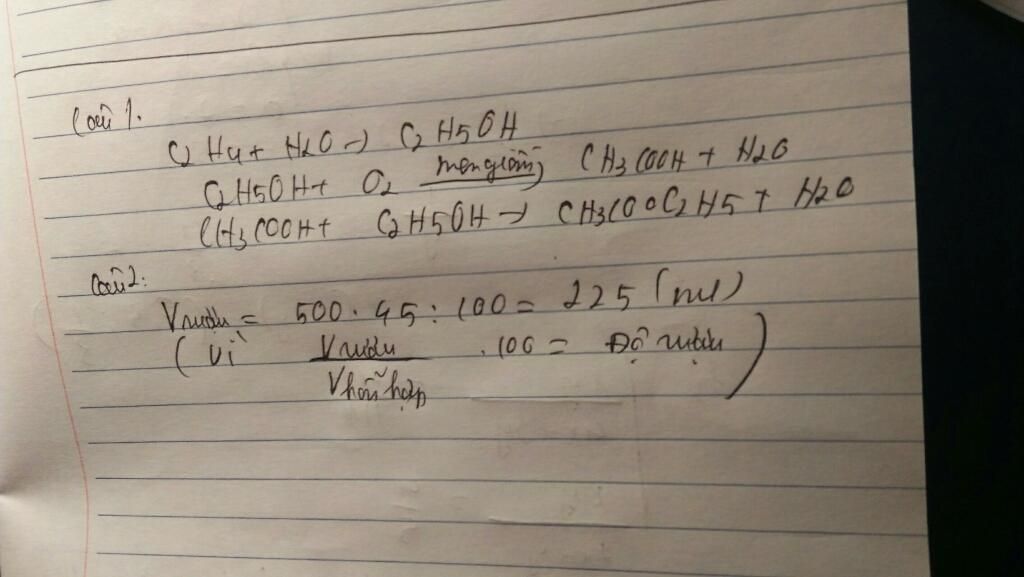 Câu 1.
C2H4 + H2O → C2H5OH
C2H5OH + O2 men giấm → CH3COOH + H2O
CH3COOH + C2H5OH → CH3COOC2H5 + H2O
Câu 2:
Vrượu = 500 . 45 : 100 = 225 (ml)
( Vì Vrượu / Vhỗn hợp . 100 = Độ rượu )